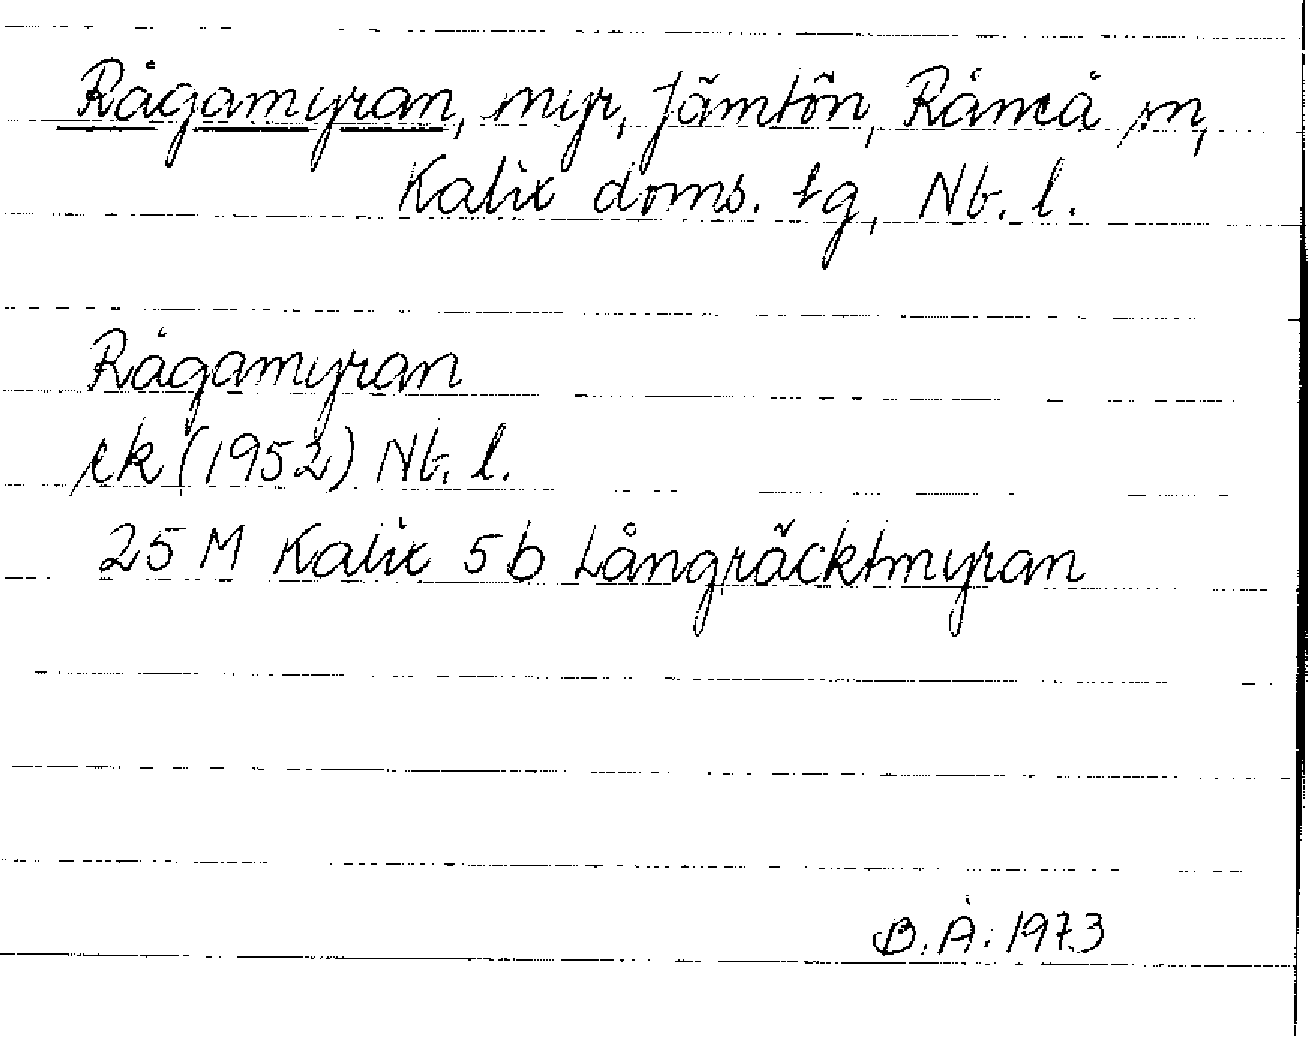 Rågamyran, myr, Jämtön, Råneå sn,
Kalix doms. tg, Nb. l.
Rågamyran
ek (1952) Nb. l.
25 M Kalix 5b Långräcktmyran
B. Å. 1973